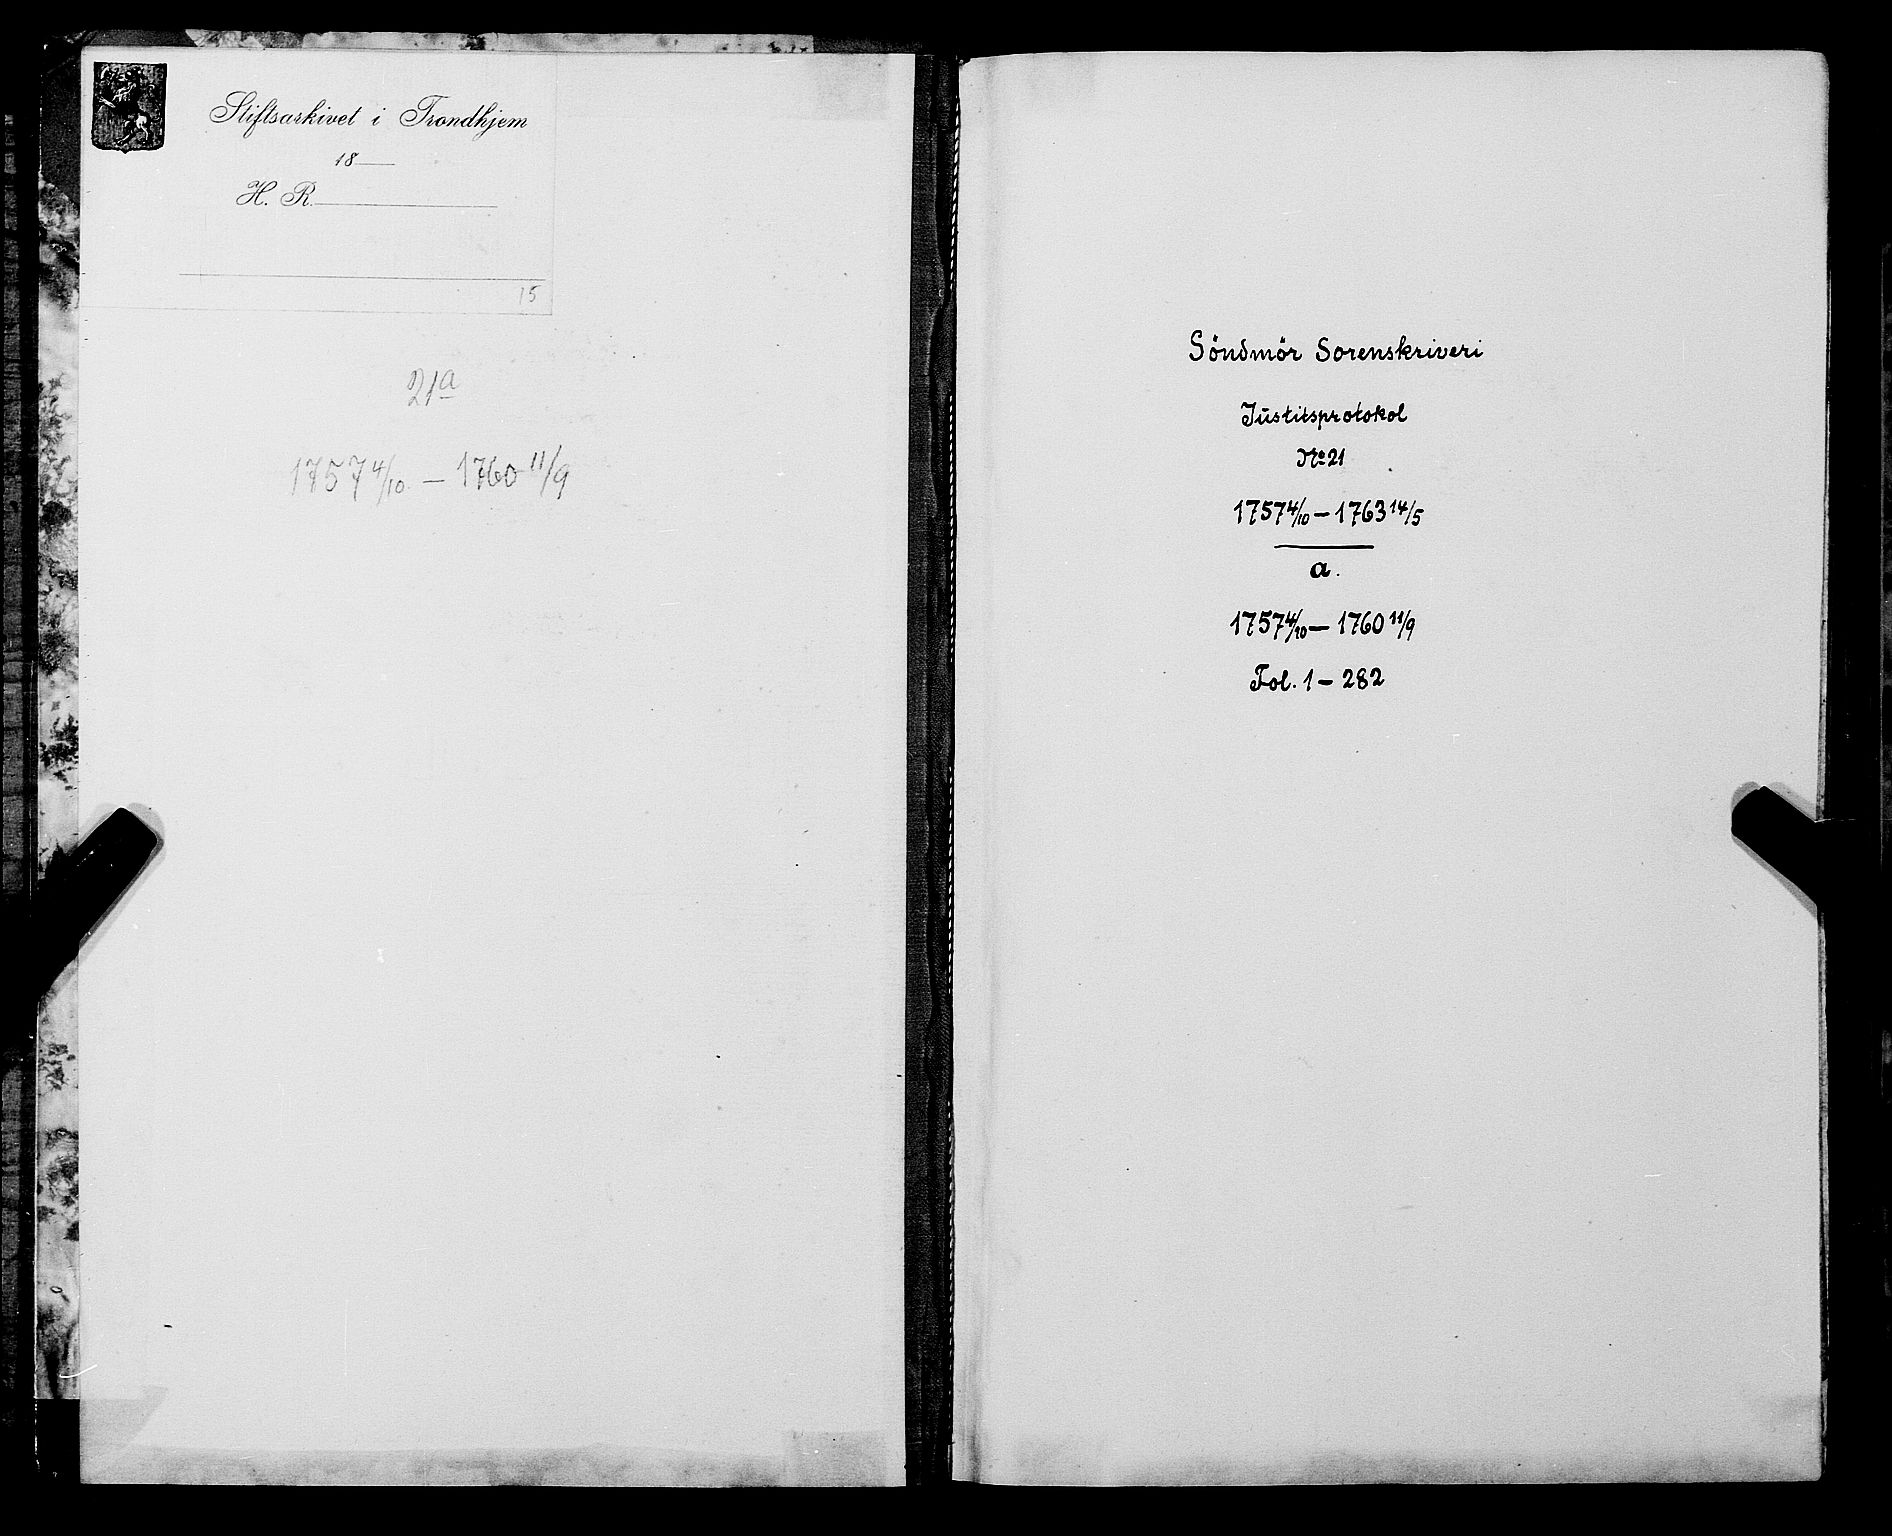 Stiftsarkivet i Trondhjem
18
H. R.
15
21a
1757 4/10 — 1760 11/9
Söndmör Sorenskriveri
Justitsprotokol
No 21
1757 4/10 — 1763 14/5
a.
1757 4/10 — 1760 11/9
Fol. 1 — 282